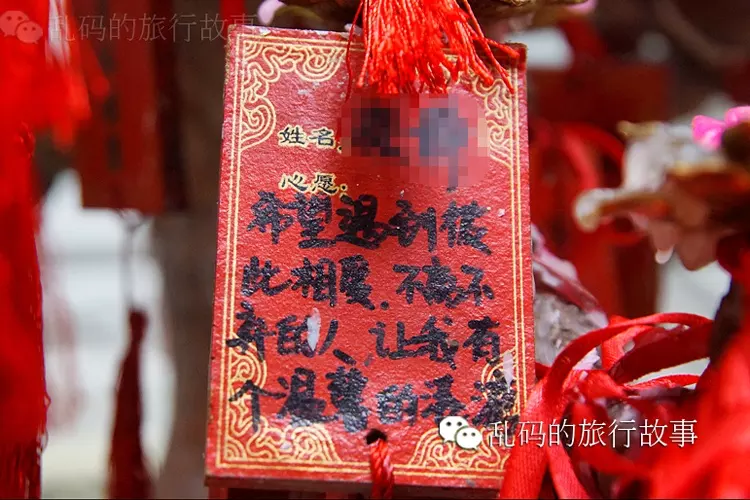 乱码的旅行故事
姓名:
心愿:
希望遇到彼
此相爱.不离不
弃的人、让我有
个温馨的
乱码的旅行故事